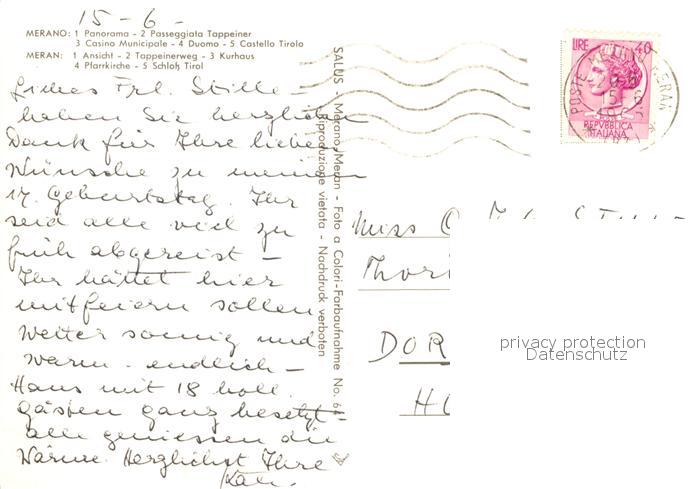 15-6-
MERANO: 1 Panorama - 2 Passeggiata Tappeiner
3 Casino Municipale - 4 Duomo - 5 Castello Tirolo
MERAN: 1 Ansicht - 2 Tappeinerweg - 3 Kurhaus
4 Pfarrkirche - 5 Schloß Tirol
Liebes Frl. Stille -
haben Sie herzlichen
Dank für Ihre lieben
Wünsche zu meinem
17. Geburtstag. Ihr
seid alle viel zu
früh abgereist -
Ihr hättet hier
mitfeiern sollen
Wetter sonnig und
warm - endlich -
Haus mit 18 holl.
Gästen ganz besetzt -
alle geniessen die
Wärme. Herzlichst Ihre
SALUS - Merano/Meran - Foto a Colori-Farbaufnahme No. 64
Riproduzione vietata - Nachdruck verboten
LIRE 40
REPVBBLICA
ITALIANA
POSTE MERANO MERAN
15-6
Miss
Thori
DOR
HO
privacy protection
Datenschutz